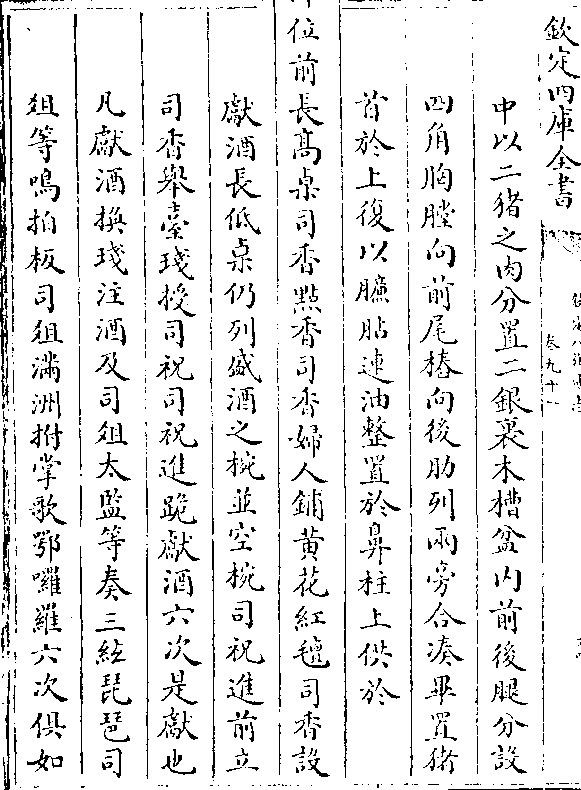 欽定四庫全書
卷九十一
中以二猪之肉分置二銀裏木槽盆内前後腿分設
四角胸膛向前尾樁向後肋列兩旁合湊畢置猪
首於上復以臁貼連油整置於鼻柱上供於
位前長髙桌司香㸃香司香婦人鋪黄花紅氊司香設
獻酒長低桌仍列盛酒之椀並空椀司祝進前立
司香舉臺琖授司祝司祝進跪獻酒六次是獻也
凡獻酒換琖注酒及司俎太監等奏三絃琵琶司
俎等鳴拍板司俎滿洲拊掌歌鄂囉羅六次俱如